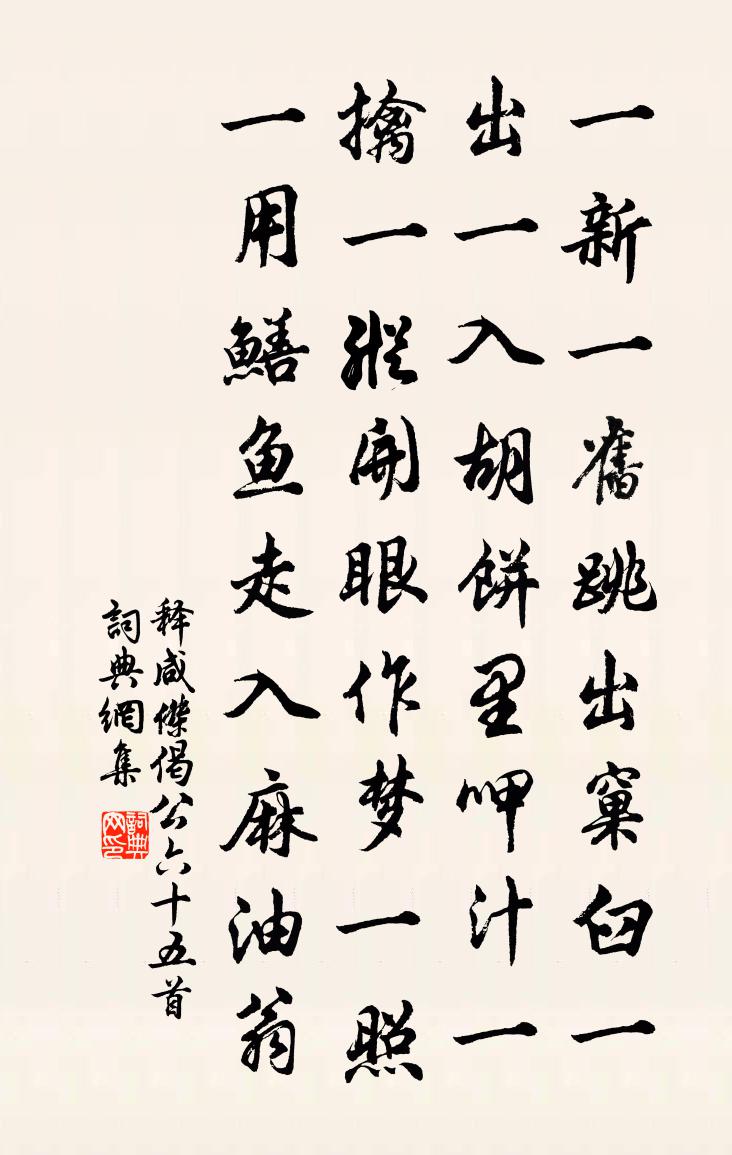 一新一舊跳出窠臼一
出一入胡餅里呷汁一
擒一縱開眼作梦一照
一用鱔鱼走入麻油翁
释咸傑偈公六十五首
詞典網集
詞典网印